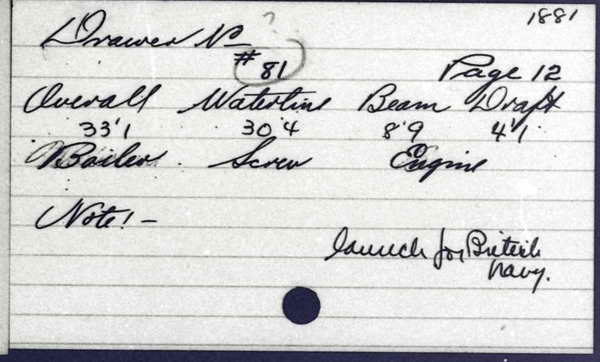 1881
Drawer No
# 81
Page 12
Overall Waterline Beam Draft
33'1 30'4 8'9 4'1
Boiler Screw Engine
Note! -
launch for British
Navy.